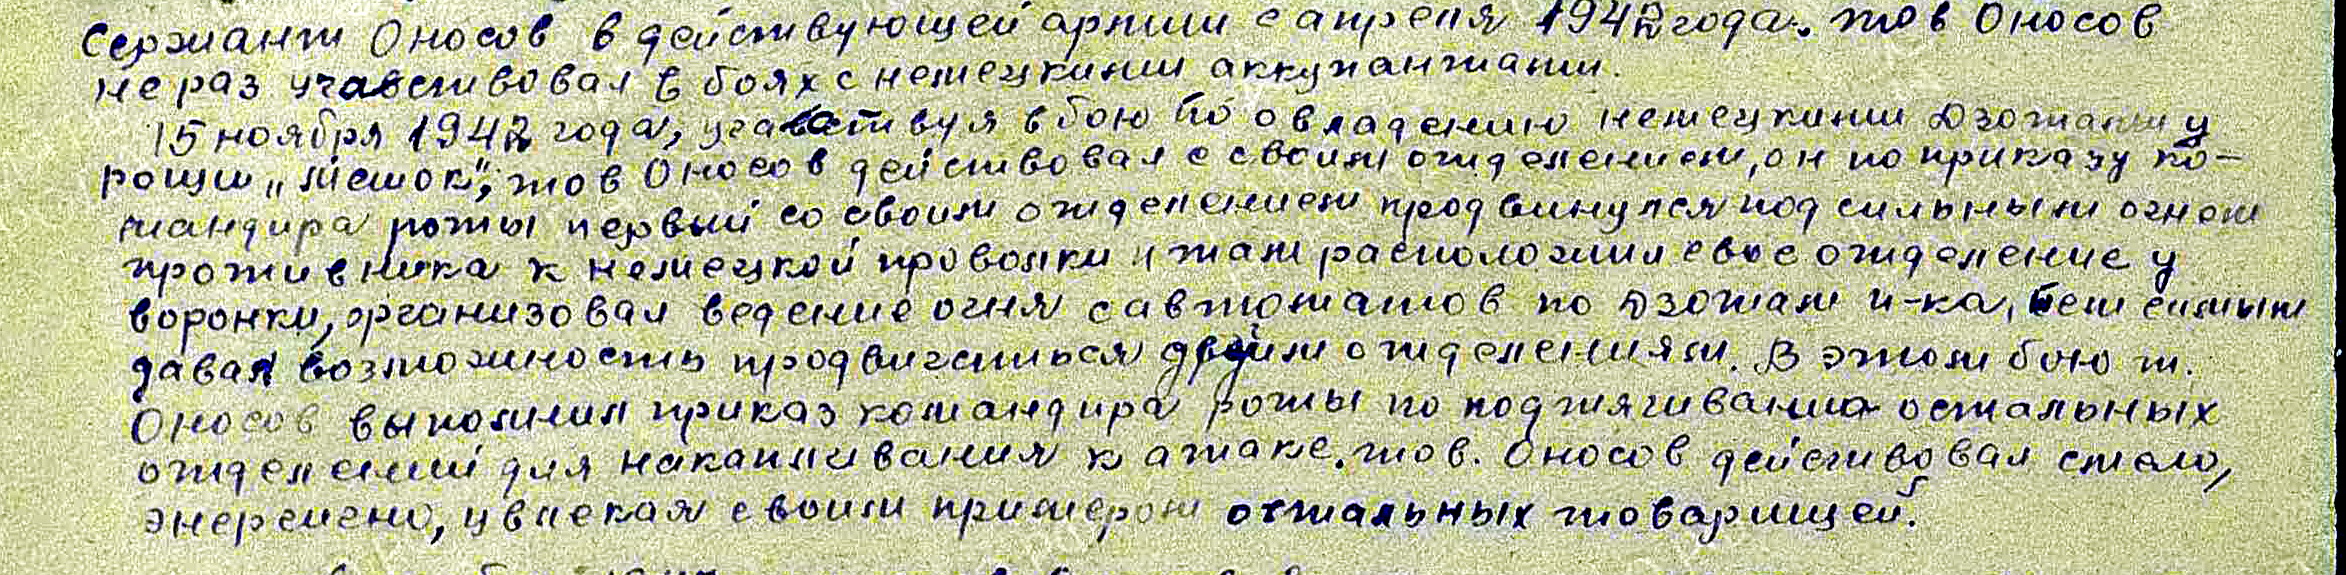 Сержант Оносов в действующей армии с апреля 1942 года. тов Оносов
не раз учавствовал в боях с немецкими аккупантами.
15 ноября 1942 года, учавствуя в бою по овладению немецкими Дзотами у
рощи „Мешок", тов Оносов действовал с своим отделением, он по приказу ко-
мандира роты первый со своим отделением продвинулся под сильным огнем
противника к немецкой проволки и там расположил свое отделение у
воронки, организовал ведение огня с автоматов по дзотам п-ка, тем самым
давая возможность продвигаться двум отделениям. В этом бою т.
Оносов выполнил приказ командира роты по подтягиванию остальных
отделений для накапливания к атаке. тов. Оносов действовал смело,
энергично, увлекая своим примером остальных товарищей.